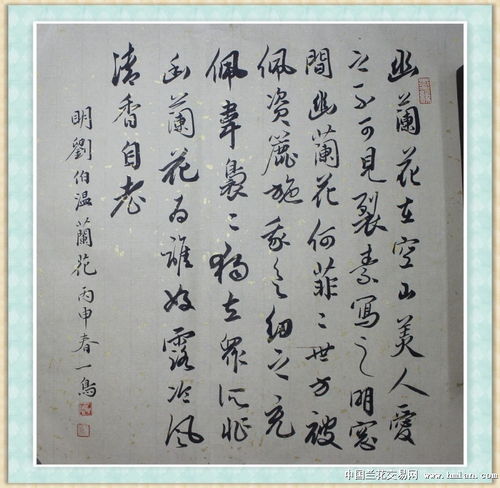 幽蘭花在空山美人愛
之不可見裂素寫之明窗
間幽蘭花何菲〻世方被
佩資簏施我欲紉之充
佩韋裊〻獨立眾所非
幽蘭花为誰好露冷风
清香自老
明劉伯温蘭花丙申春一鳥
中国兰花交易网 www.hmlan.com